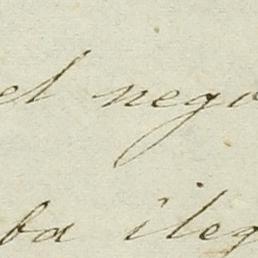 el nego
ba ileg